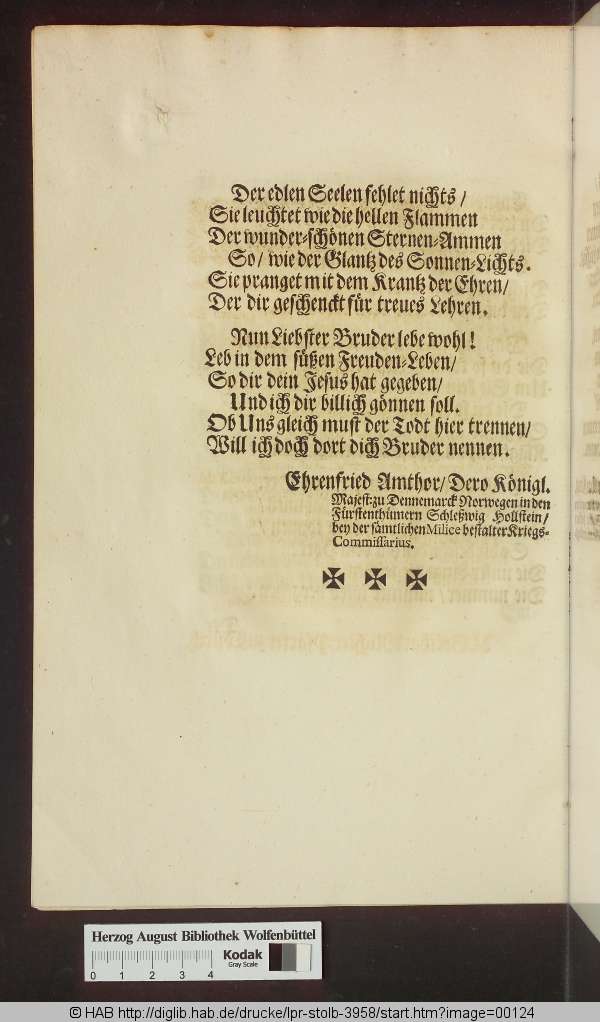 Der edlen Seelen fehlet nichts /
Sie leuchtet wie die hellen Flammen
Der wunder-schönen Sternen-Ammen
So / wie der Glantz des Sonnen-Lichts.
Sie pranget mit dem Krantz der Ehren /
Der dir geschenckt für treues Lehren.
Nun Liebster Bruder lebe wohl!
Leb in dem süßen Freuden-Leben /
So dir dein Jesus hat gegeben /
Und ich dir billich gönnen soll.
Ob Uns gleich must der Todt hier trennen /
Will ich doch dort dich Bruder nennen.
Ehrenfried Amthor / Dero Königl.
Majest: zu Dennemarck Norwegen in den
Fürstenthümern Schleßwig Hollstein /
bey der sämtlichen Milice bestalter Kriegs-
Commissarius.
Herzog August Bibliothek Wolfenbüttel
Kodak
Gray Scale
0 1 2 3 4
© HAB http://diglib.hab.de/drucke/lpr-stolb-3958/start.htm?image=00124